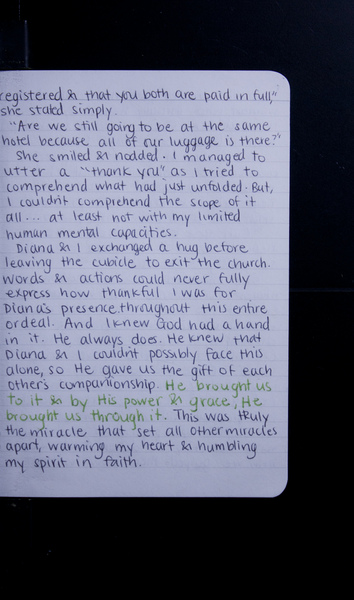 registered & that you both are paid in full,"
she stated simply.
"Are we still going to be at the same
hotel because all of our luggage is there?"
She smiled & nodded. I managed to
utter a "thank you" as I tried to
comprehend what had just unfolded. But,
I couldn't comprehend the scope of it
all... at least not with my limited
human mental capacities.
Diana & I exchanged a hug before
leaving the cubicle to exit the church.
Words & actions could never fully
express how thankful I was for
Diana's presence throughout this entire
ordeal. And I knew God had a hand
in it. He always does. He knew that
Diana & I couldn't possibly face this
alone, so He gave us the gift of each
other's companionship. He brought us
to it & by His power & grace, He
brought us through it. This was truly
the miracle that set all other miracles
apart, warming my heart & humbling
my spirit in faith.